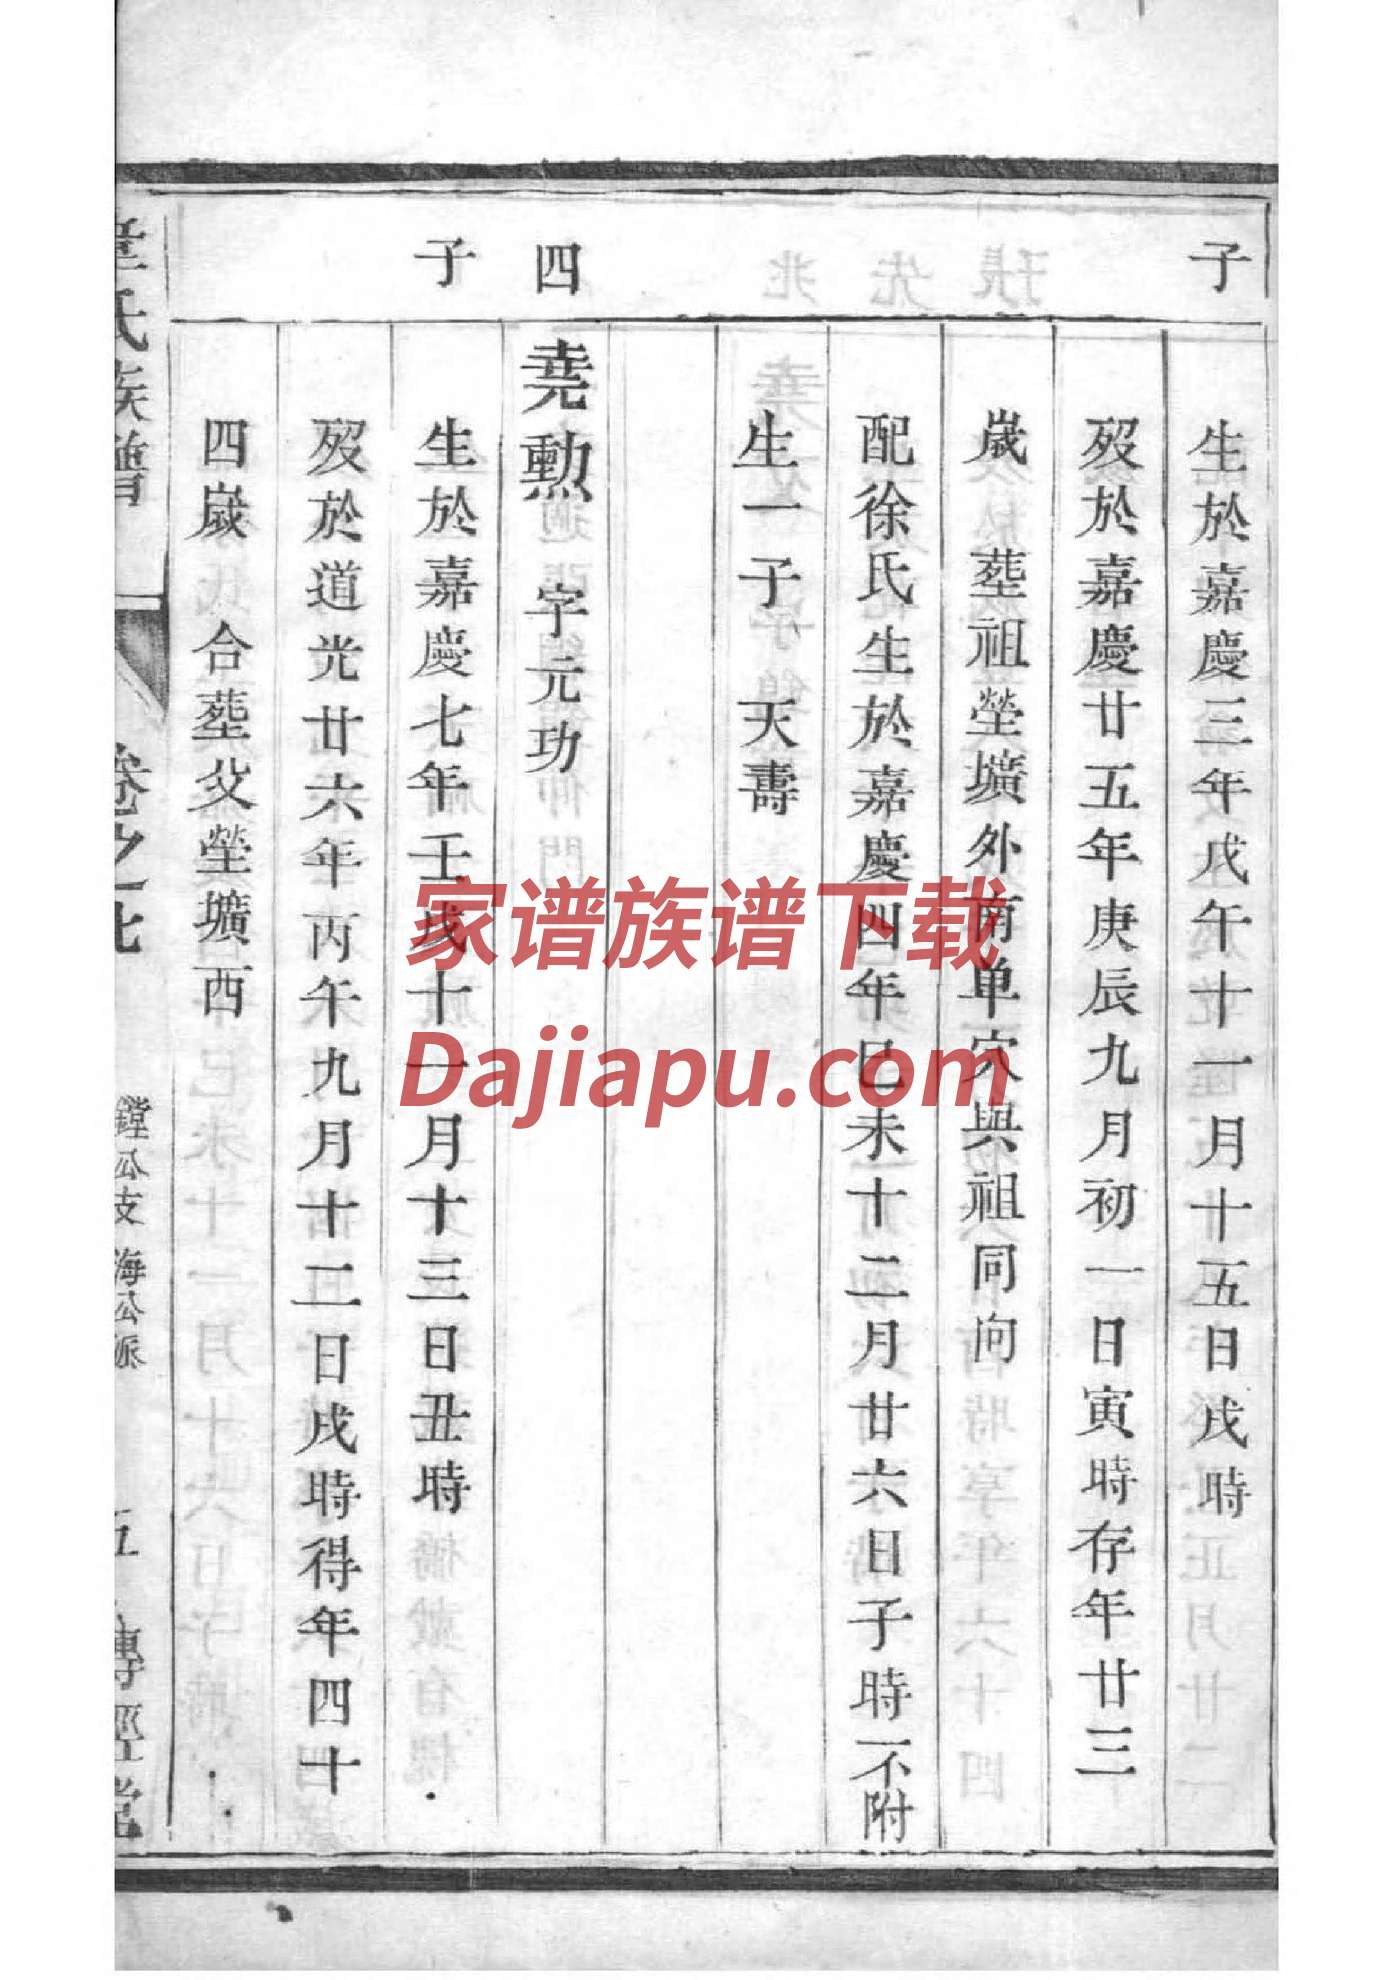 子
生於嘉慶三年戊午十一月十五日戌時
歿於嘉慶廿五年庚辰九月初一日寅時存年廿三
歲 葬祖塋壙外南单穴與祖同向
配徐氏生於嘉慶四年巳未十二月廿六日子時不附
生一子 天壽
四
堯勲 字元功
子
生於嘉慶七年壬戌十一月十三日丑時
歿於道光廿六年丙午九月十二日戌時得年四十
四歲 合葬父塋壙西
氏族譜 卷之七 鏜公支 海公派 五 傳經堂
家谱族谱下载
Dajiapu.com